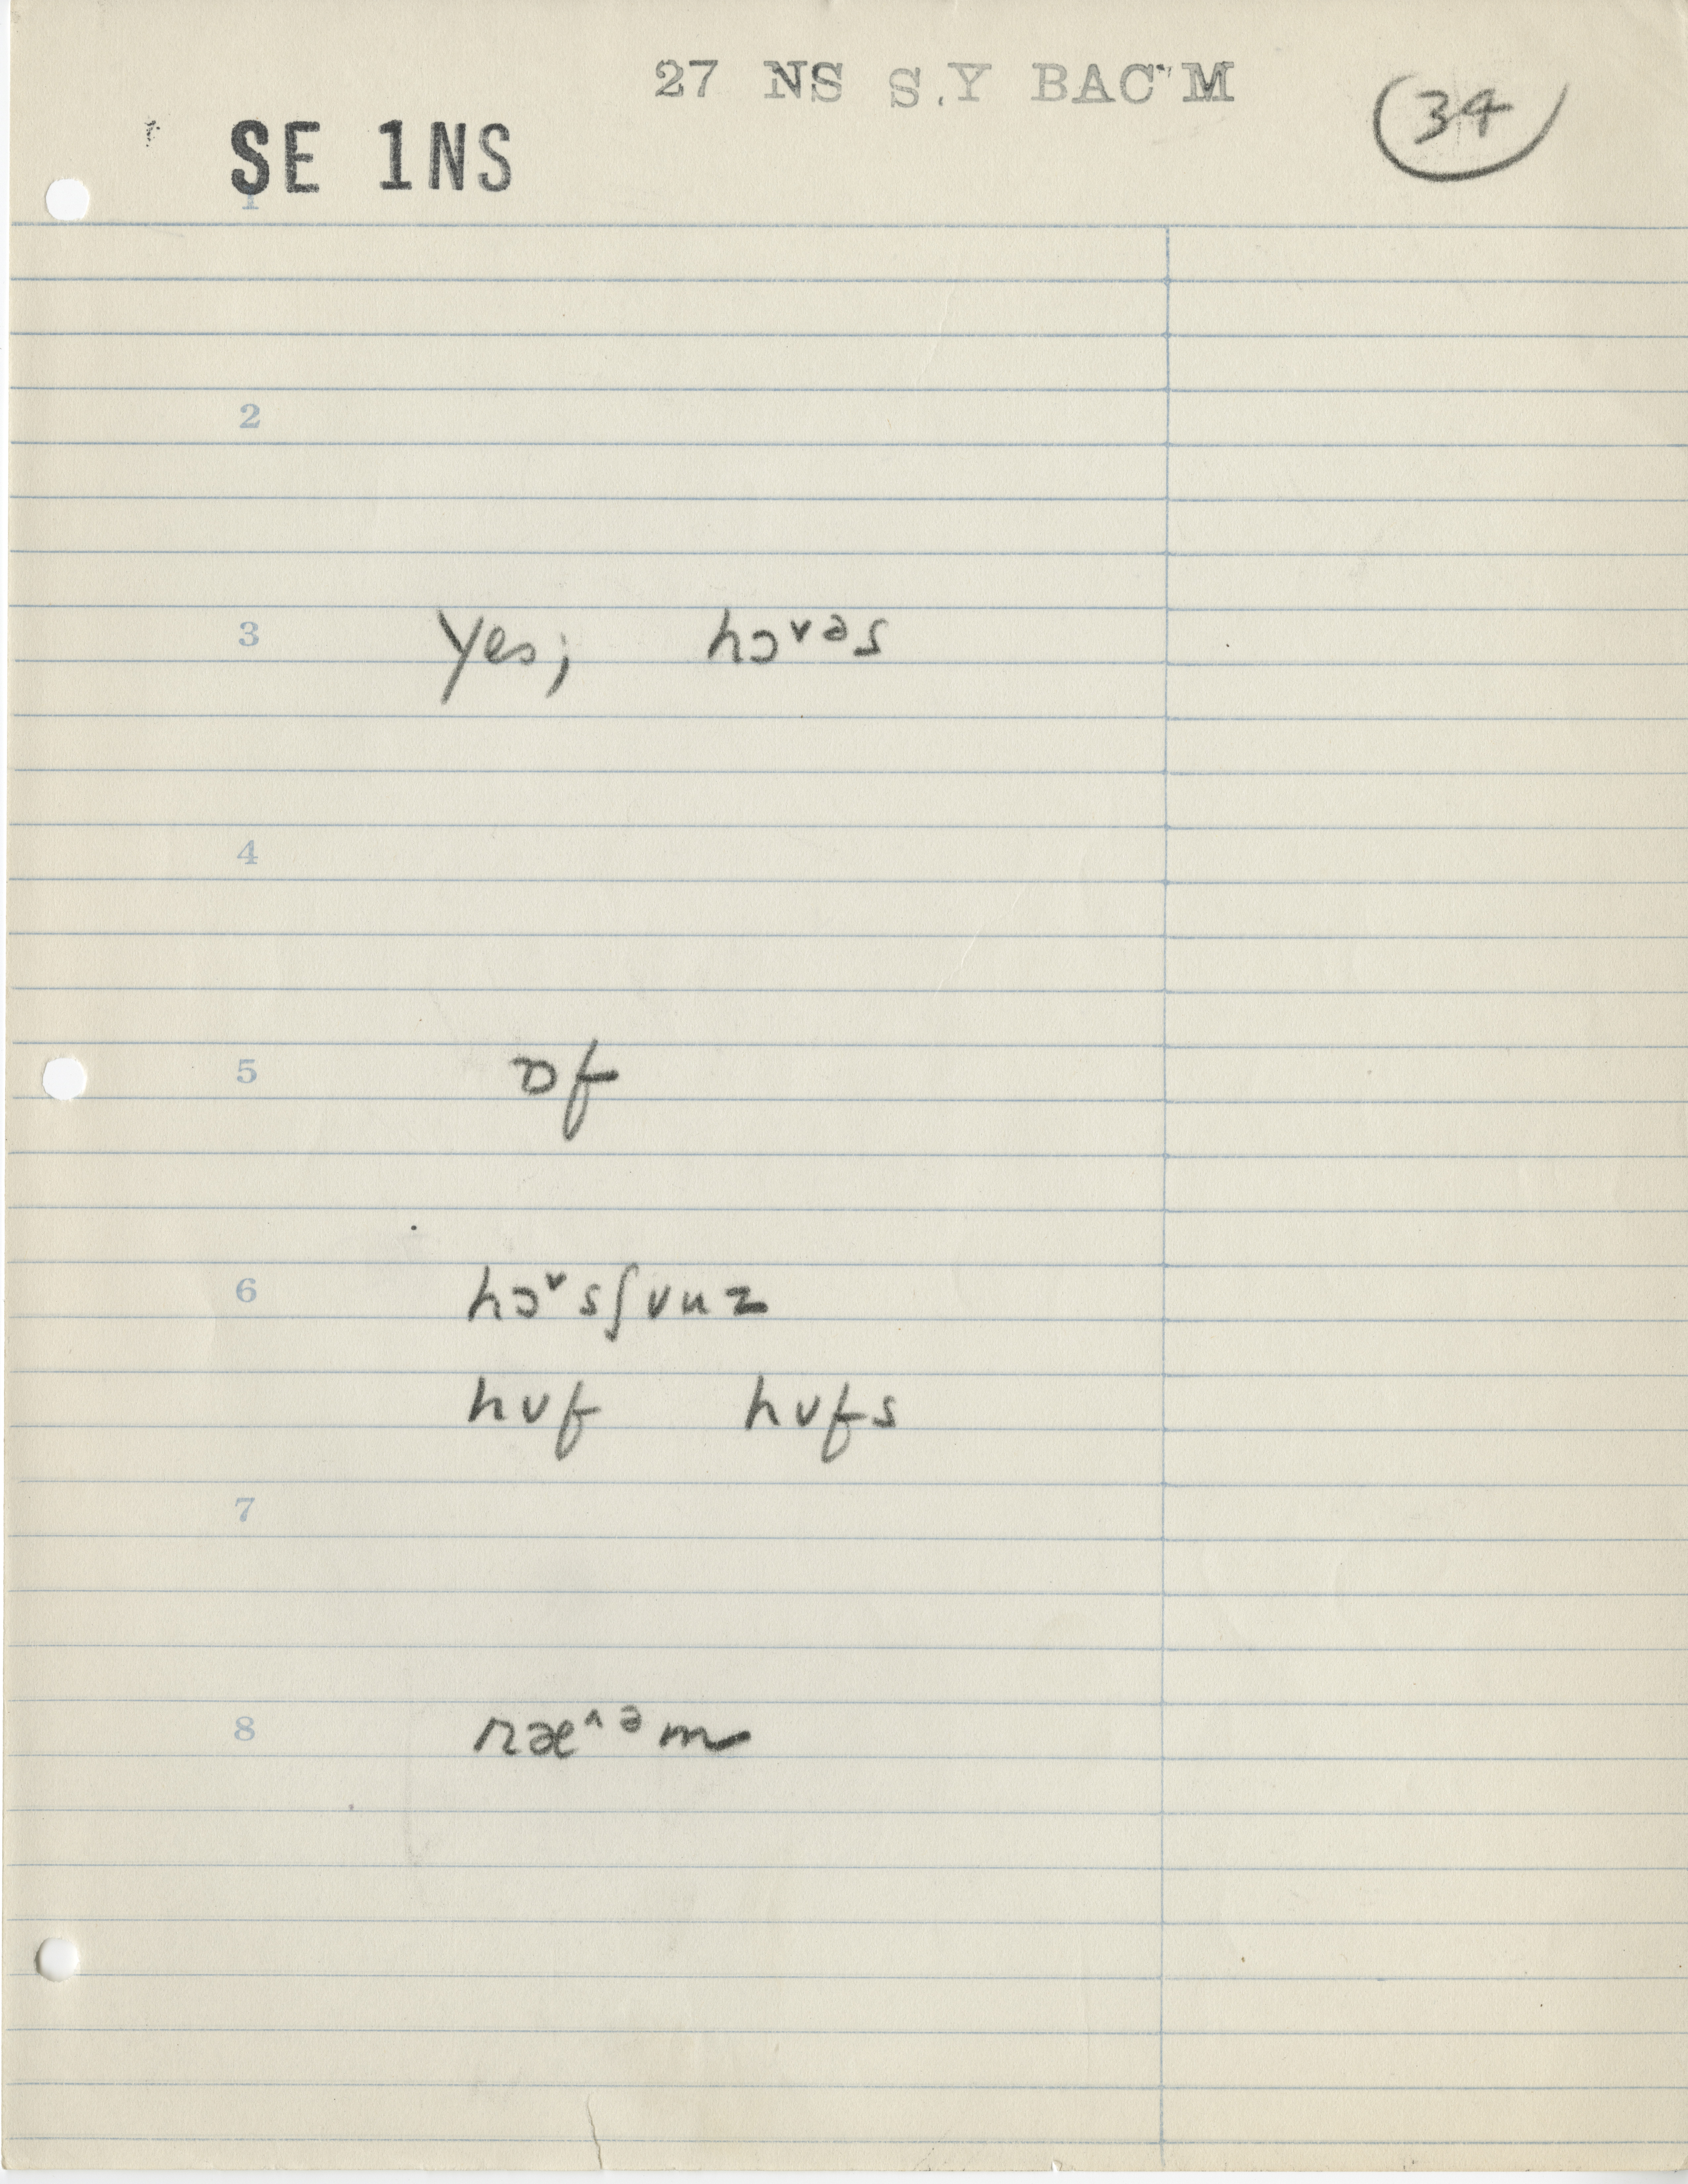 27 NS S.Y BAC'M
34
SE 1NS
1
2
3 Yes; hɔ˅ᵊs
4
5 ɒf
6 hɔ˅sʃunz
huf hufs
7
8 ræ^ᵊm